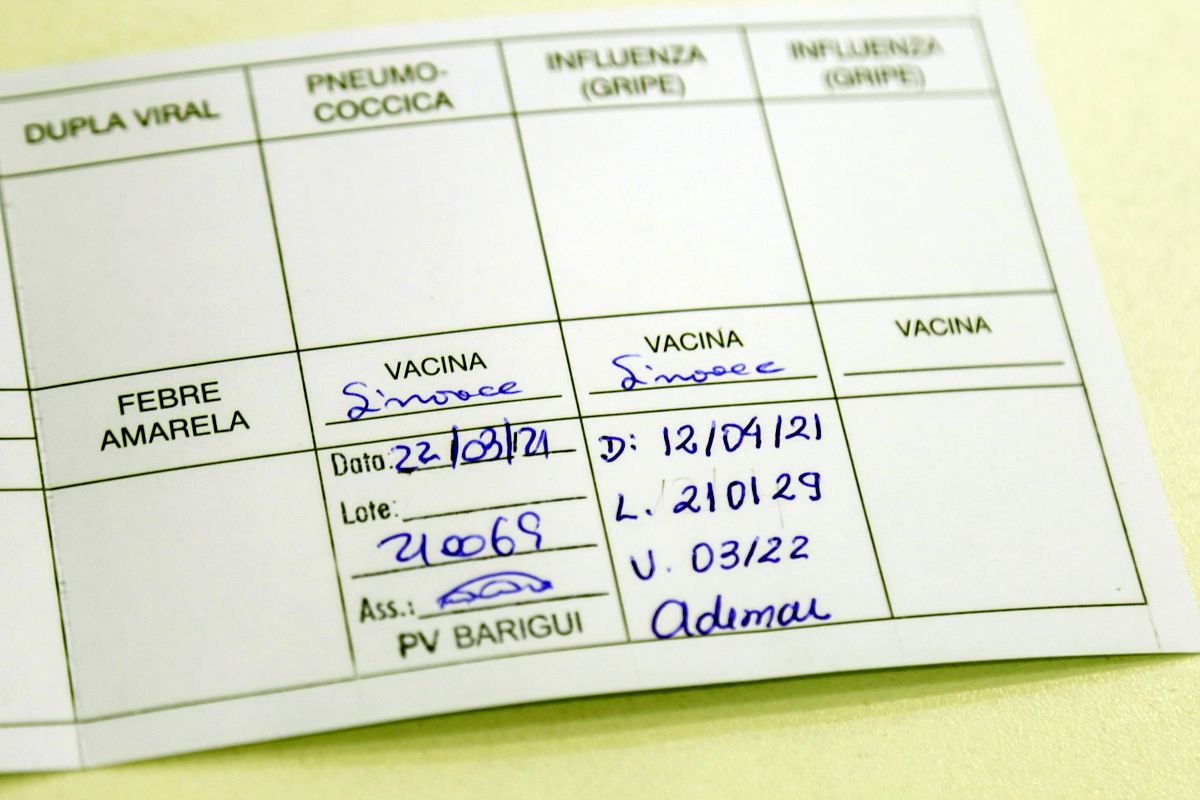 DUPLA VIRAL
PNEUMO-
COCCICA
INFLUENZA
(GRIPE)
INFLUENZA
(GRIPE)
FEBRE
AMARELA
VACINA
Sinovac
Data: 22/03/21
Lote:
210069
Ass.:
PV BARIGUI
VACINA
Sinovac
D: 12/04/21
L. 210129
V. 03/22
Ademar
VACINA